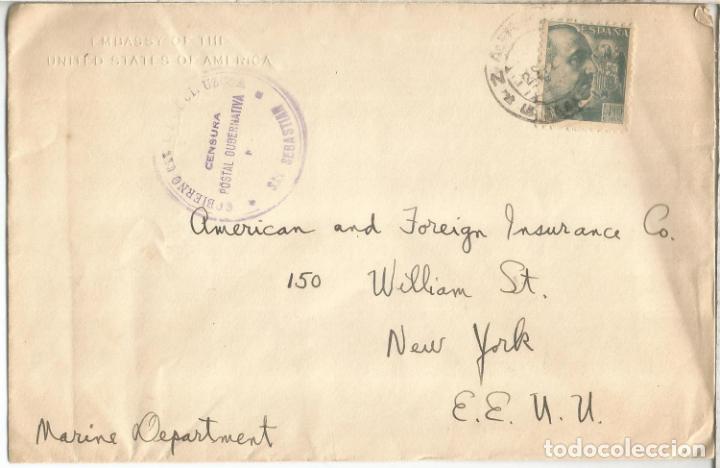 EMBASSY OF THE
UNITED STATES OF AMERICA
ESPAÑA
CENSURA
POSTAL GUBERNATIVA
SAN SEBASTIAN
American and Foreign Insurance Co.
150 William St.
New York
E.E.U.U.
Marine Department
todocoleccion